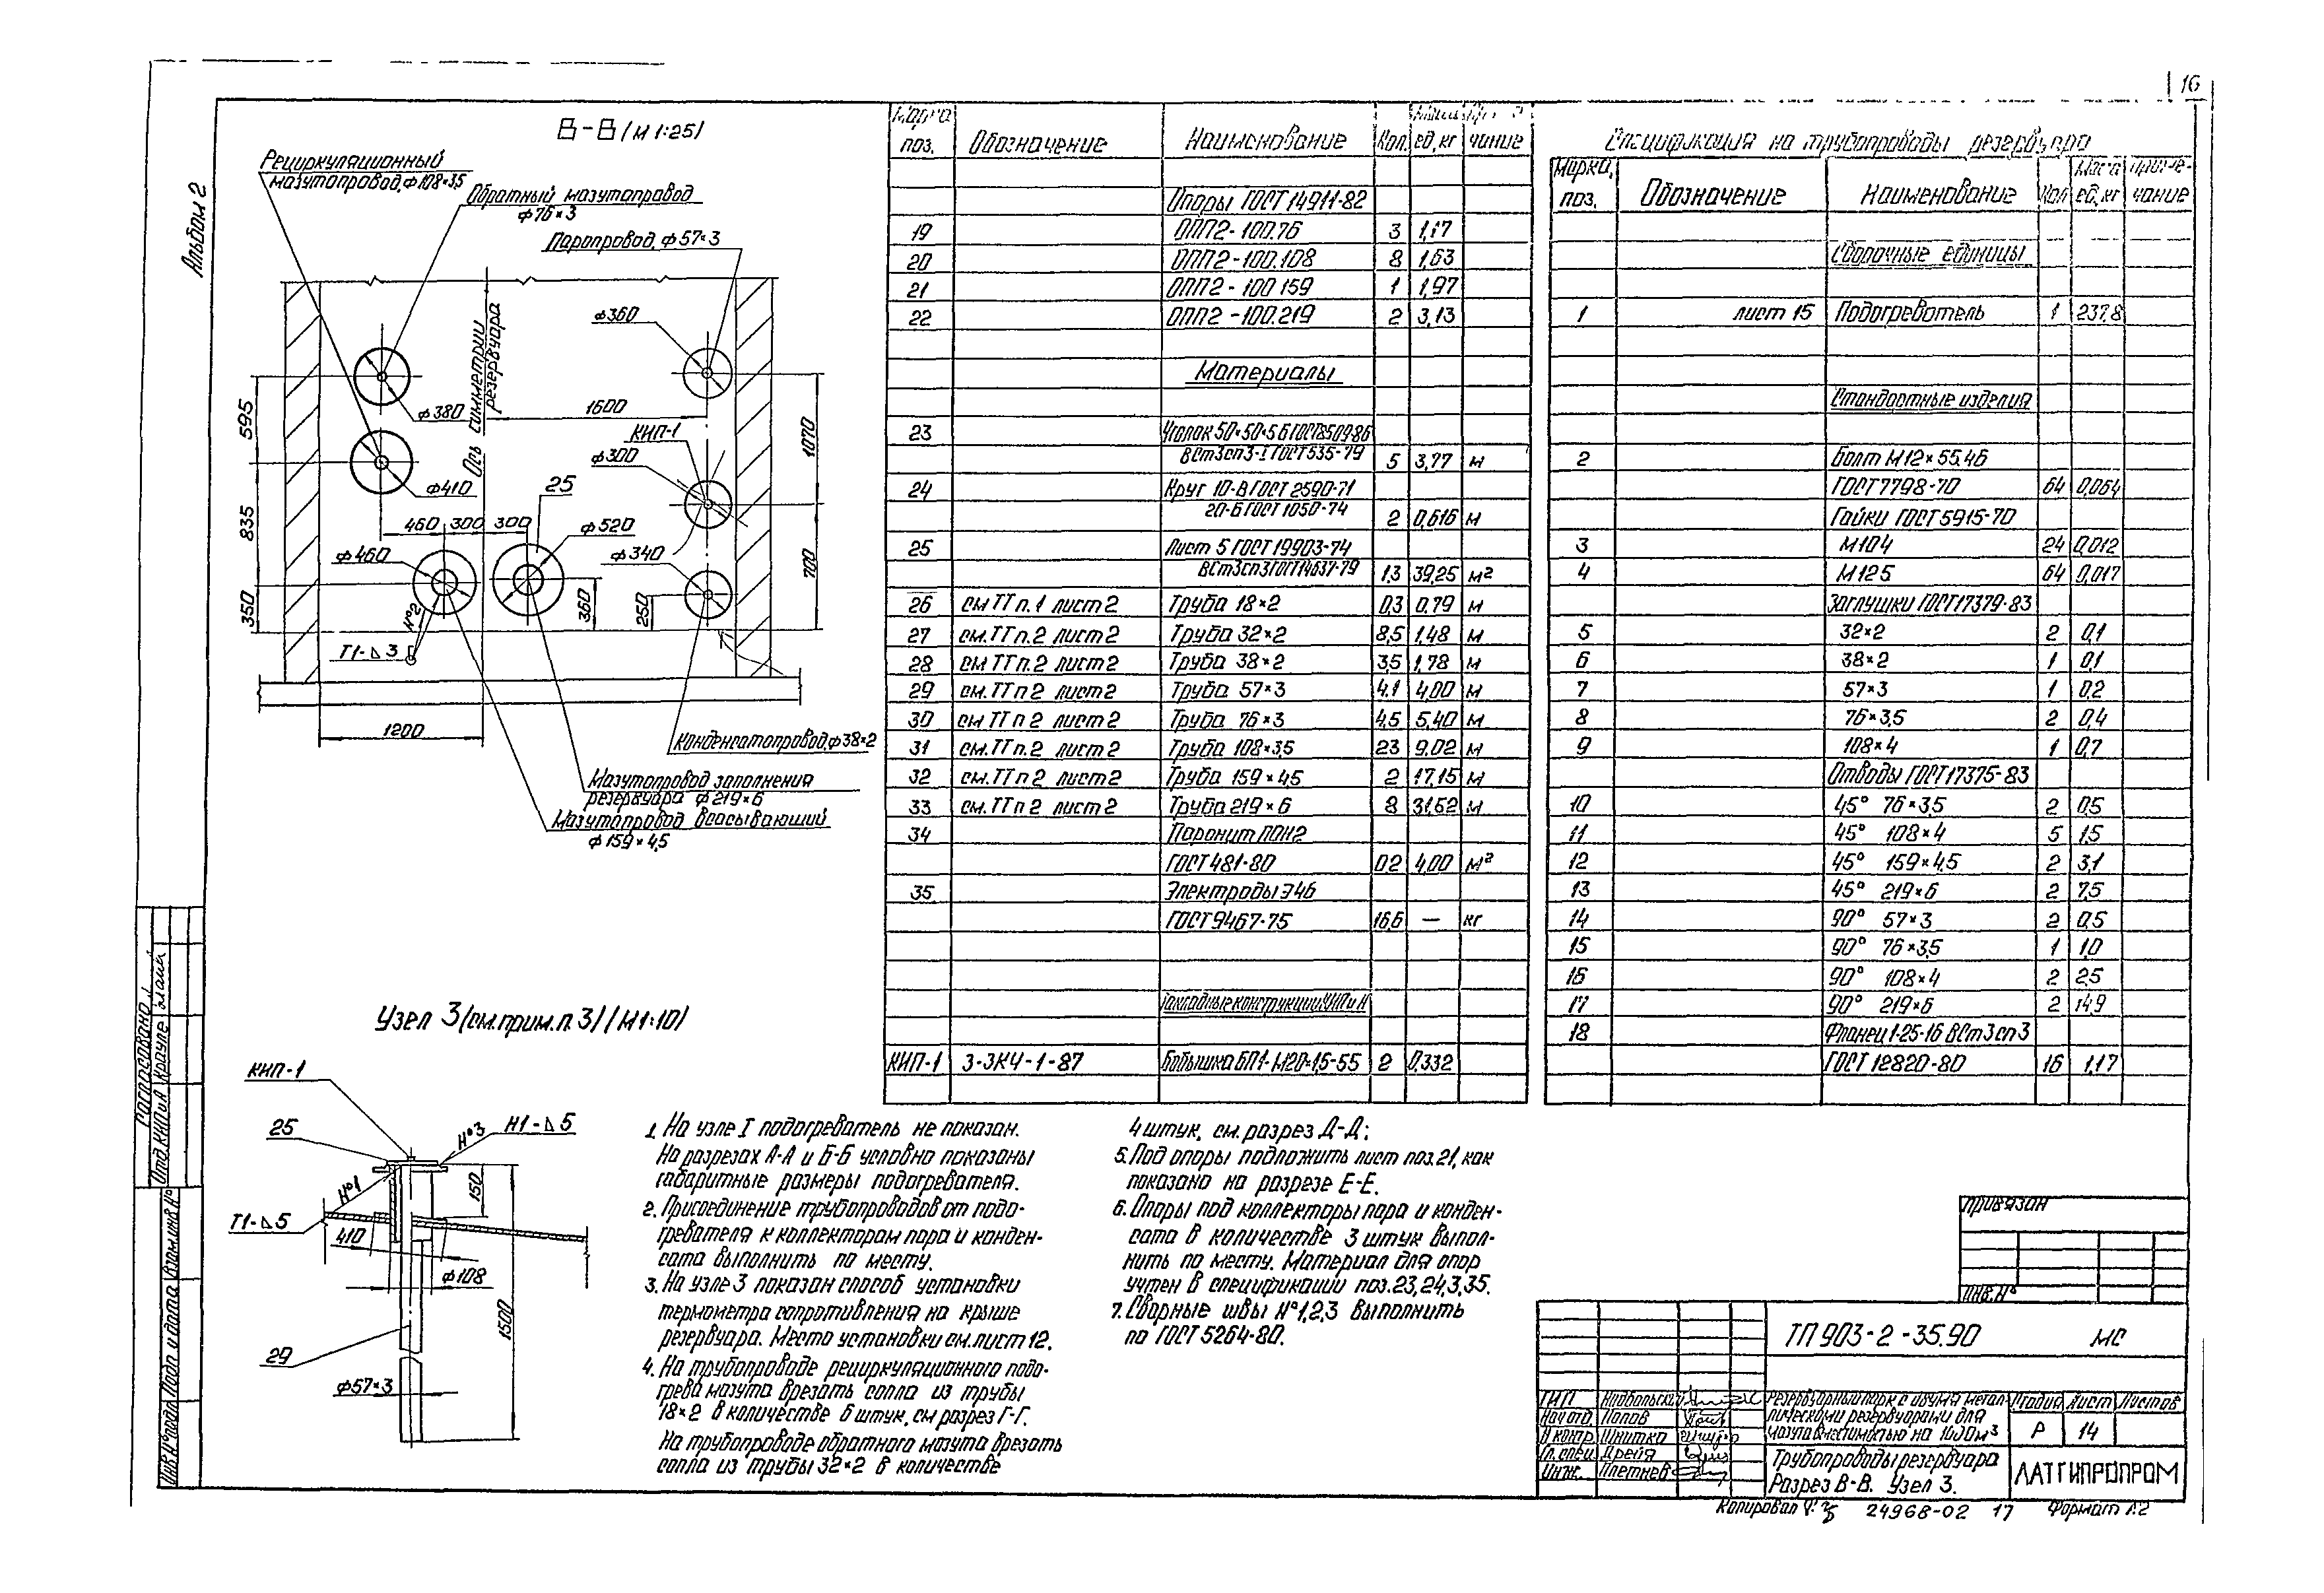 16
Альбом 2
В-В (М 1:25)
Рециркуляционный
мазутопровод, ф108×3,5
Обратный мазутопровод
ф76×3
Паропровод, ф57×3
ф360
ф380
Ось симметрии
резервуара
1600
595
КИП-1
1070
ф300
ф410
25
835
460 300 300
ф520
ф460
ф340
700
350
№2
360
250
Т1-⊿3
1200
Конденсатопровод, ф38×2
Мазутопровод заполнения
резервуара ф219×6
Мазутопровод всасывающий
ф159×4,5
Узел 3 (см. прим. п. 3) (М 1:10)
КИП-1
25
№3
Н1-⊿5
№1
150
Т1-⊿5
410
ф108
1500
29
ф57×3
Марка поз. Обозначение Наименование Кол. ед, кг чание
Опоры ГОСТ 14911-82
19 ОПП2-100.76 3 1,17
20 ОПП2-100.108 8 1,63
21 ОПП2-100 159 1 1,97
22 ОПП2-100.219 2 3,13
Материалы
23 Уголок 50×50×5 Б ГОСТ8509-86
ВСт3сп3-I ГОСТ535-79 5 3,77 м
24 Круг 10-В ГОСТ 2590-71
20-Б ГОСТ 1050-74 2 0,616 м
25 Лист 5 ГОСТ 19903-74
ВСт3сп3 ГОСТ14637-79 1,3 39,25 м²
26 см ТТ п. 1 лист 2 Труба 18×2 0,3 0,79 м
27 см. ТТ п. 2 лист 2 Труба 32×2 8,5 1,48 м
28 см ТТ п. 2 лист 2 Труба 38×2 3,5 1,78 м
29 см. ТТ п 2 лист 2 Труба 57×3 4,1 4,00 м
30 см ТТ п 2 лист 2 Труба 76×3 4,5 5,40 м
31 см. ТТ п. 2 лист 2 Труба 108×3,5 23 9,02 м
32 см. ТТ п 2 лист 2 Труба 159×4,5 2 17,15 м
33 см. ТТ п 2 лист 2 Труба 219×6 8 31,52 м
34 Паронит ПОН2
ГОСТ 481-80 0,2 4,00 м²
35 Электроды Э46
ГОСТ 9467-75 16,6 — кг
Закладные конструкции КИП и А
КИП-1 3-ЗК4-1-87 Бобышка БП1-М20×1,5-55 2 0,332
Спецификация на трубопроводы резервуара
Марка, поз. Обозначение Наименование Кол Масса ед, кг Приме-чание
Сборочные единицы
1 лист 15 Подогреватель 1 237,8
Стандартные изделия
2 Болт М12×55.46
ГОСТ 7798-70 64 0,064
Гайки ГОСТ 5915-70
3 М10.4 24 0,012
4 М12 5 64 0,017
Заглушки ГОСТ17379-83
5 32×2 2 0,1
6 38×2 1 0,1
7 57×3 1 0,2
8 76×3,5 2 0,4
9 108×4 1 0,7
Отводы ГОСТ17375-83
10 45° 76×3,5 2 0,5
11 45° 108×4 5 1,5
12 45° 159×4,5 2 3,1
13 45° 219×6 2 7,5
14 90° 57×3 2 0,5
15 90° 76×3,5 1 1,0
16 90° 108×4 2 2,5
17 90° 219×6 2 14,9
18 Фланец 1-25-16 ВСт3сп3
ГОСТ 12820-80 16 1,17
1. На узле I подогреватель не показан.
На разрезах А-А и Б-Б условно показаны
габаритные размеры подогревателя.
2. Присоединение трубопроводов от подо-
гревателя к коллекторам пара и конден-
сата выполнить по месту.
3. На узле 3 показан способ установки
термометра сопротивления на крыше
резервуара. Место установки см. лист 12.
4. На трубопроводе рециркуляционного подо-
грева мазута врезать сопла из трубы
18×2 в количестве 6 штук, см разрез Г-Г.
На трубопроводе обратного мазута врезать
сопла из трубы 32×2 в количестве
4 штук, см. разрез Д-Д;
5. Под опоры подложить лист поз. 21, как
показано на разрезе Е-Е.
6. Опоры под коллекторы пара и конден-
сата в количестве 3 штук выпол-
нить по месту. Материал для опор
учтен в спецификации поз. 23, 24, 3, 35.
7. Сварные швы №1,2,3 выполнить
по ГОСТ 5264-80.
Привязан
Инв. №
ТП 903-2-35.90 МС
ГИП
Нач отд. Попов
Н контр. Шнитко
Гл. спец. Дрейя
Инж. Плетнев
Резервуарный парк с двумя метал-
лическими резервуарами для
мазута вместимостью на 1000 м³
Стадия Лист Листов
Р 14
Трубопроводы резервуара
Разрез В-В. Узел 3.
ЛАТГИПРОПРОМ
Копировал
24968-02 17
Формат А2
Согласовано
Отд. КИП и А Крауле
Инв. № подл Подп и дата Взам. инв №